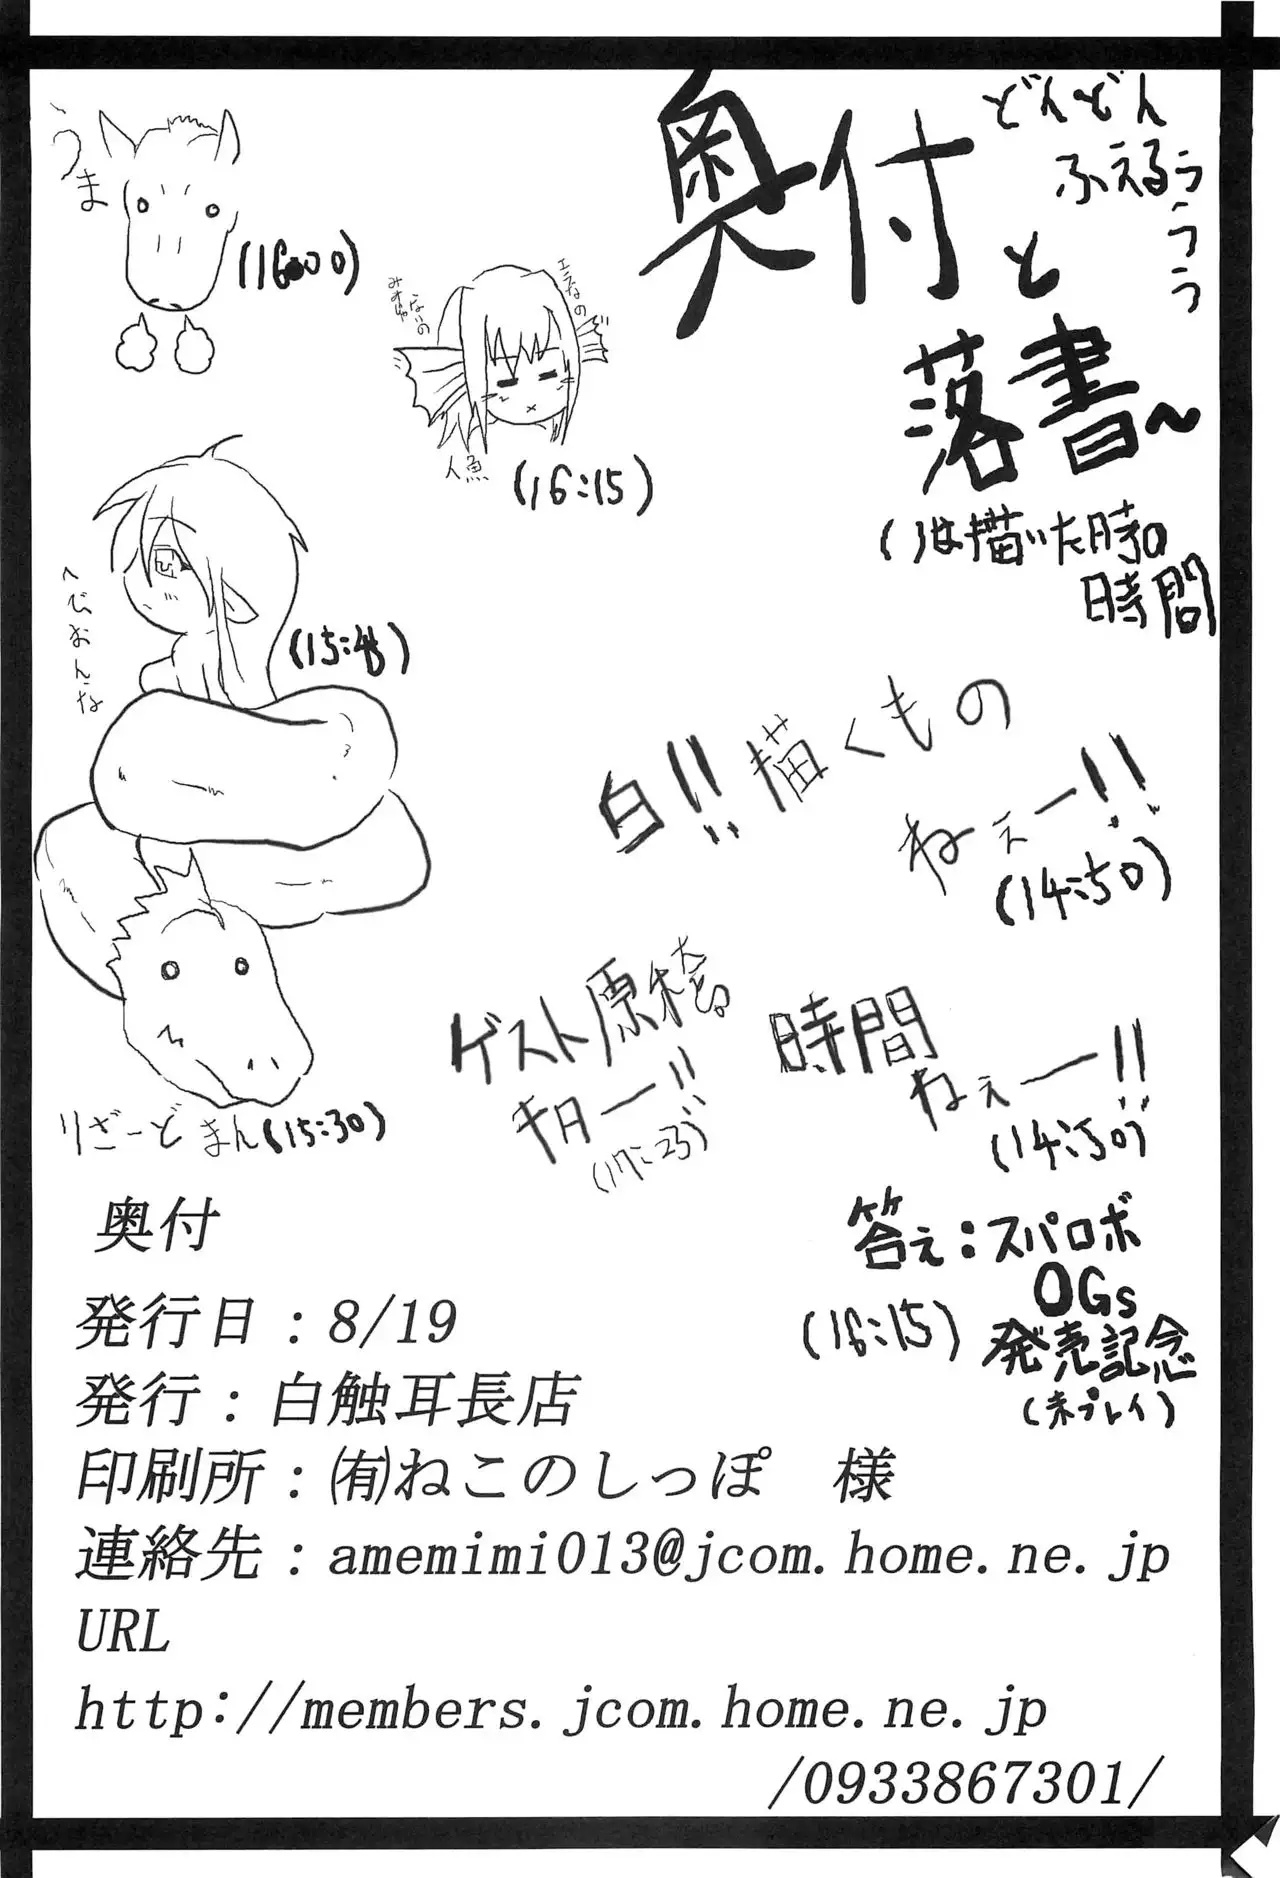 奥付と
落書〜
どんどん
ふえるぅ
うぅぅ
( )は描いた時の
時間
うま
(16:00)
エラなの
みみじゃ
ないの
人魚
(16:15)
へびおんな
(15:45)
白!!描くもの
ねぇー!!
(14:50)
ゲスト原稿
キター!!
(17:23)
時間
ねぇー!!
(14:50)
りざーどまん(15:30)
答え:スパロボ
OGs
発売記念
(未プレイ)
(16:15)
奥付
発行日：8/19
発行：白触耳長店
印刷所：㈲ねこのしっぽ　様
連絡先：amemimi013@jcom.home.ne.jp
URL
http://members.jcom.home.ne.jp
/0933867301/